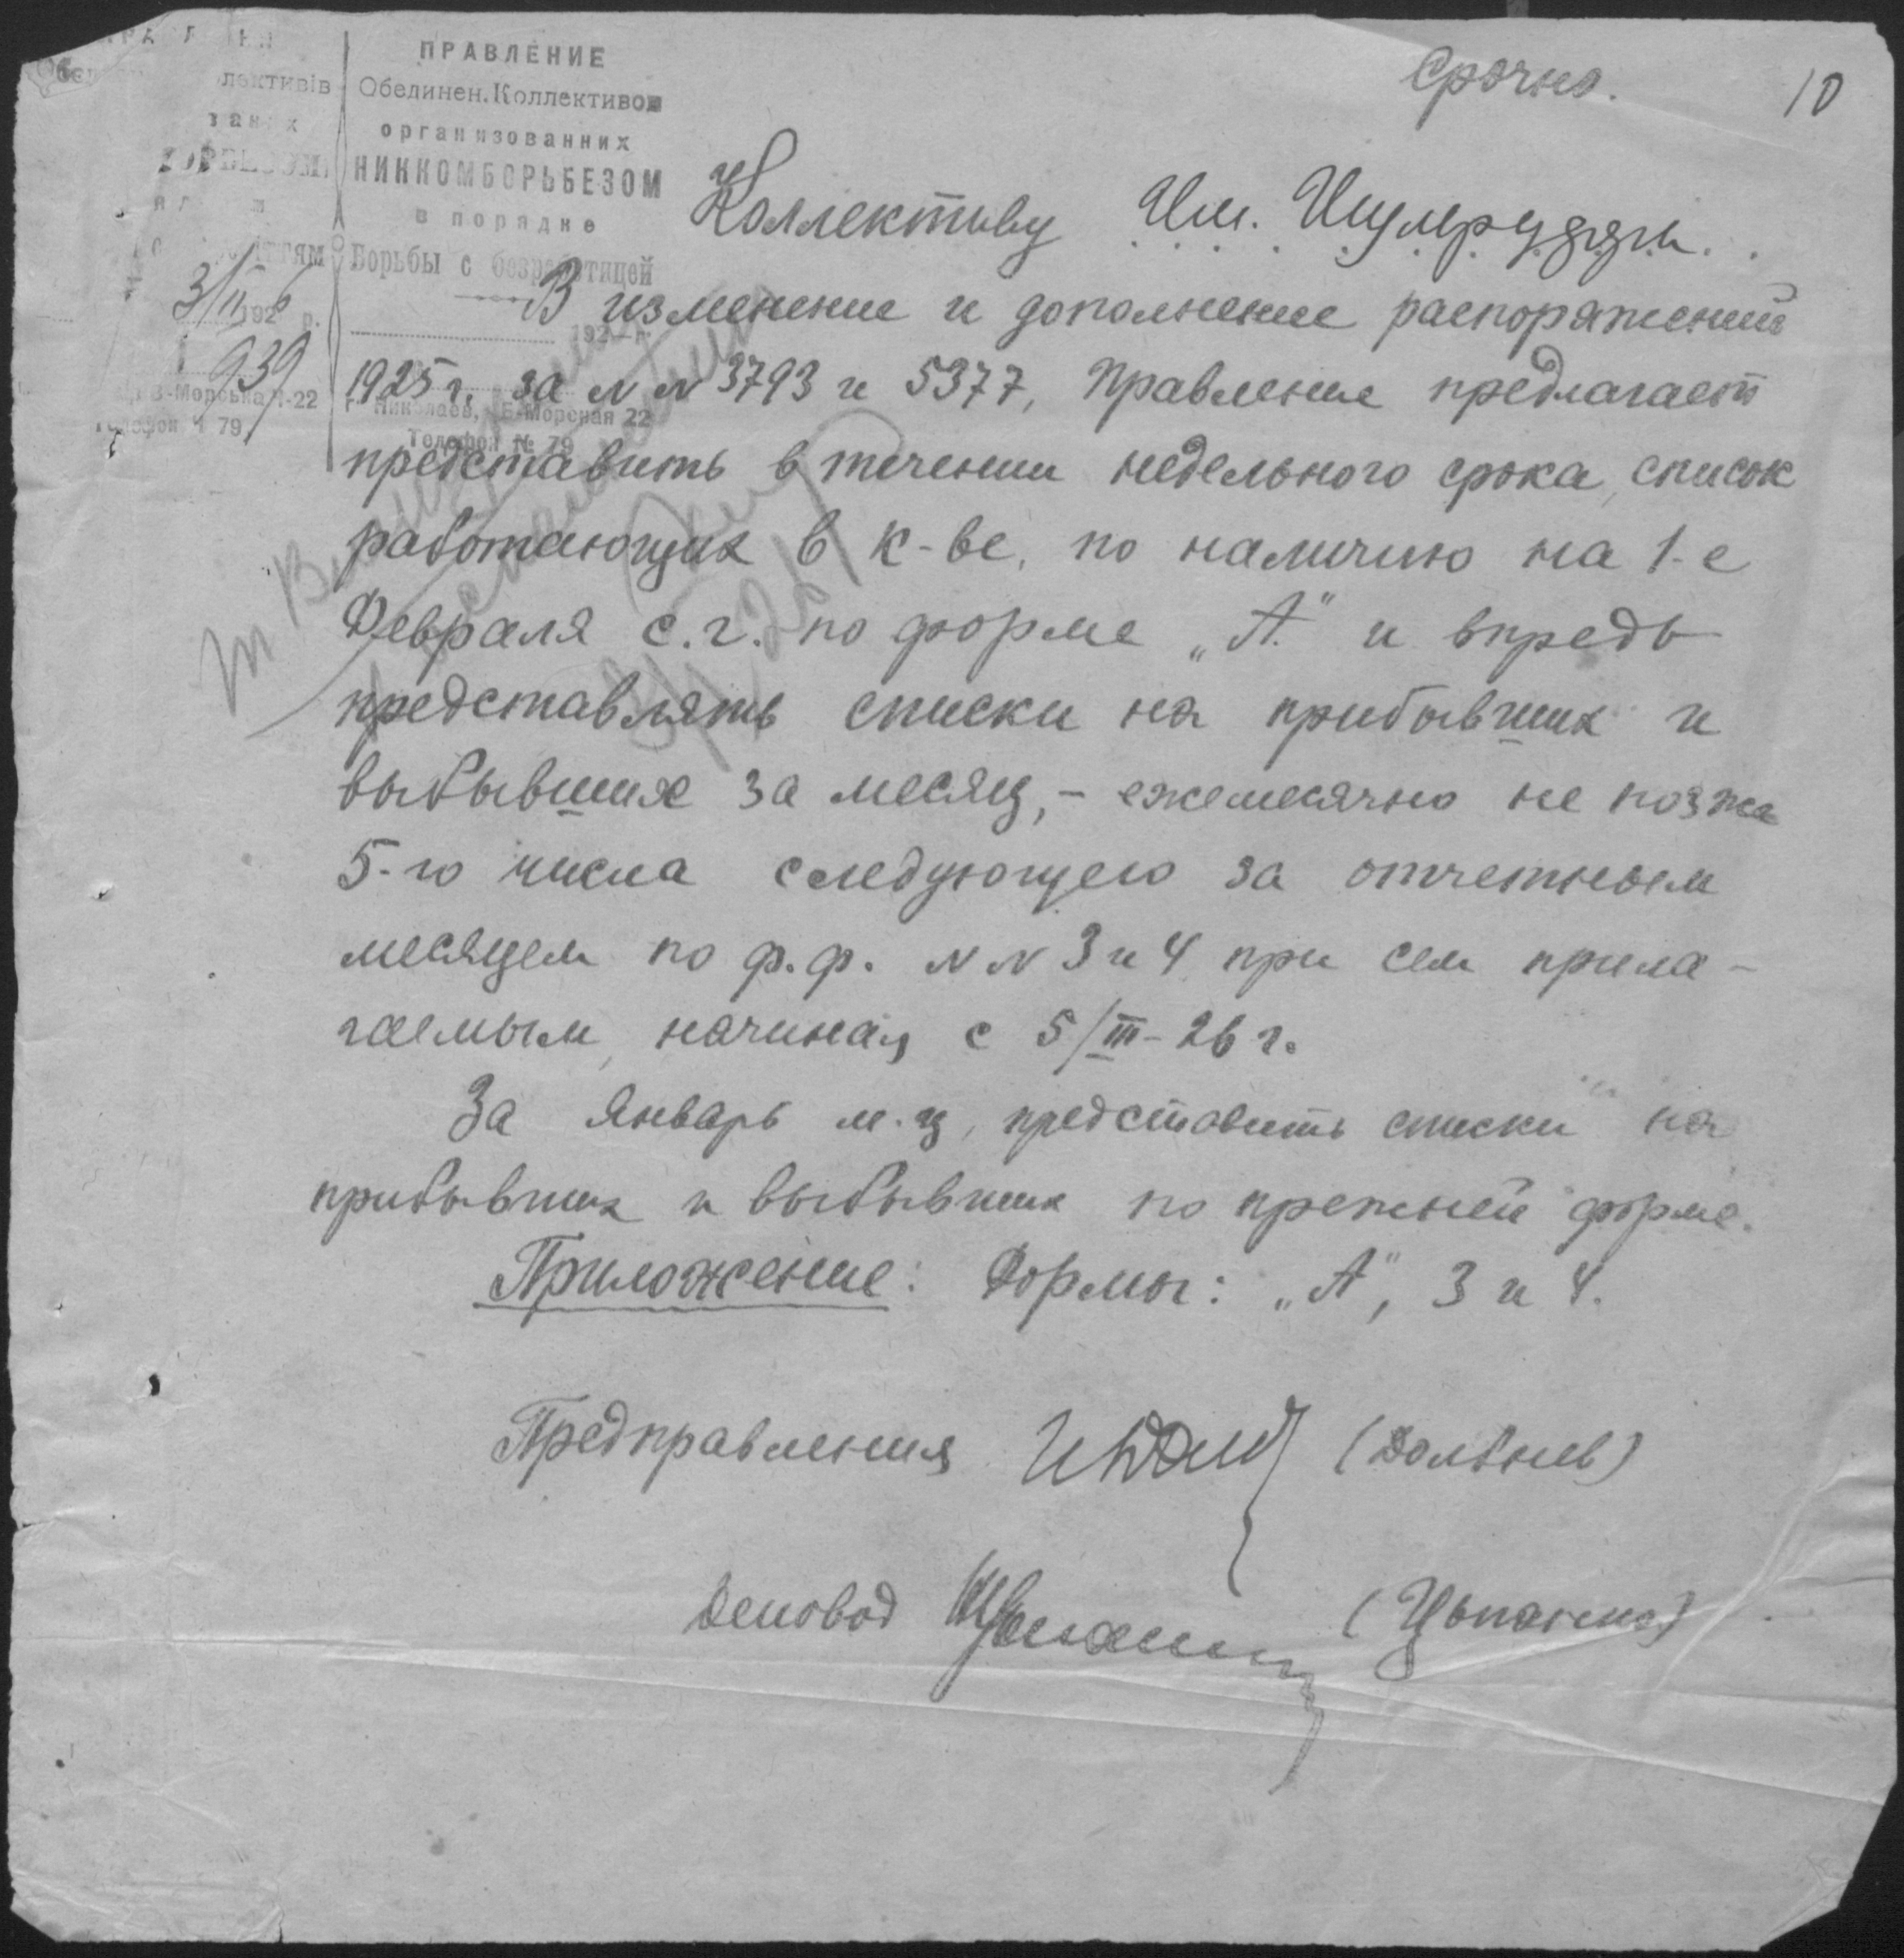 Срочно.
10
ПРАВЛЕНИЕ
Обединен. Коллективов
организованних
НИККОМБОРЬБЕЗОМ
в порядке
Борьбы с безработицей
лективів
3/II 1926 р.
939
192 г.
г. Николаев, Б-Морская 22
Телефон № 79
Коллективу Им.
В изменение и дополнение распоряжений
1925 г. за N N 3793 и 5377, Правление предлагает
представить в течении недельного срока, список
работающих в к-ве, по наличию на 1-е
Февраля с.г. по форме „А" и впредь
представлять списки на прибывших и
выбывших за месяц, - ежемесячно не позже
5-го числа следующего за отчетным
месяцем по ф.ф. N N 3 и 4 при сем прила-
гаемым, начиная с 5/III-26 г.
За Январь м-ц, представить списки на
прибывших и выбывших по прежней форме.
Приложение: Формы: „А", 3 и 4.
Предправления
Деловод